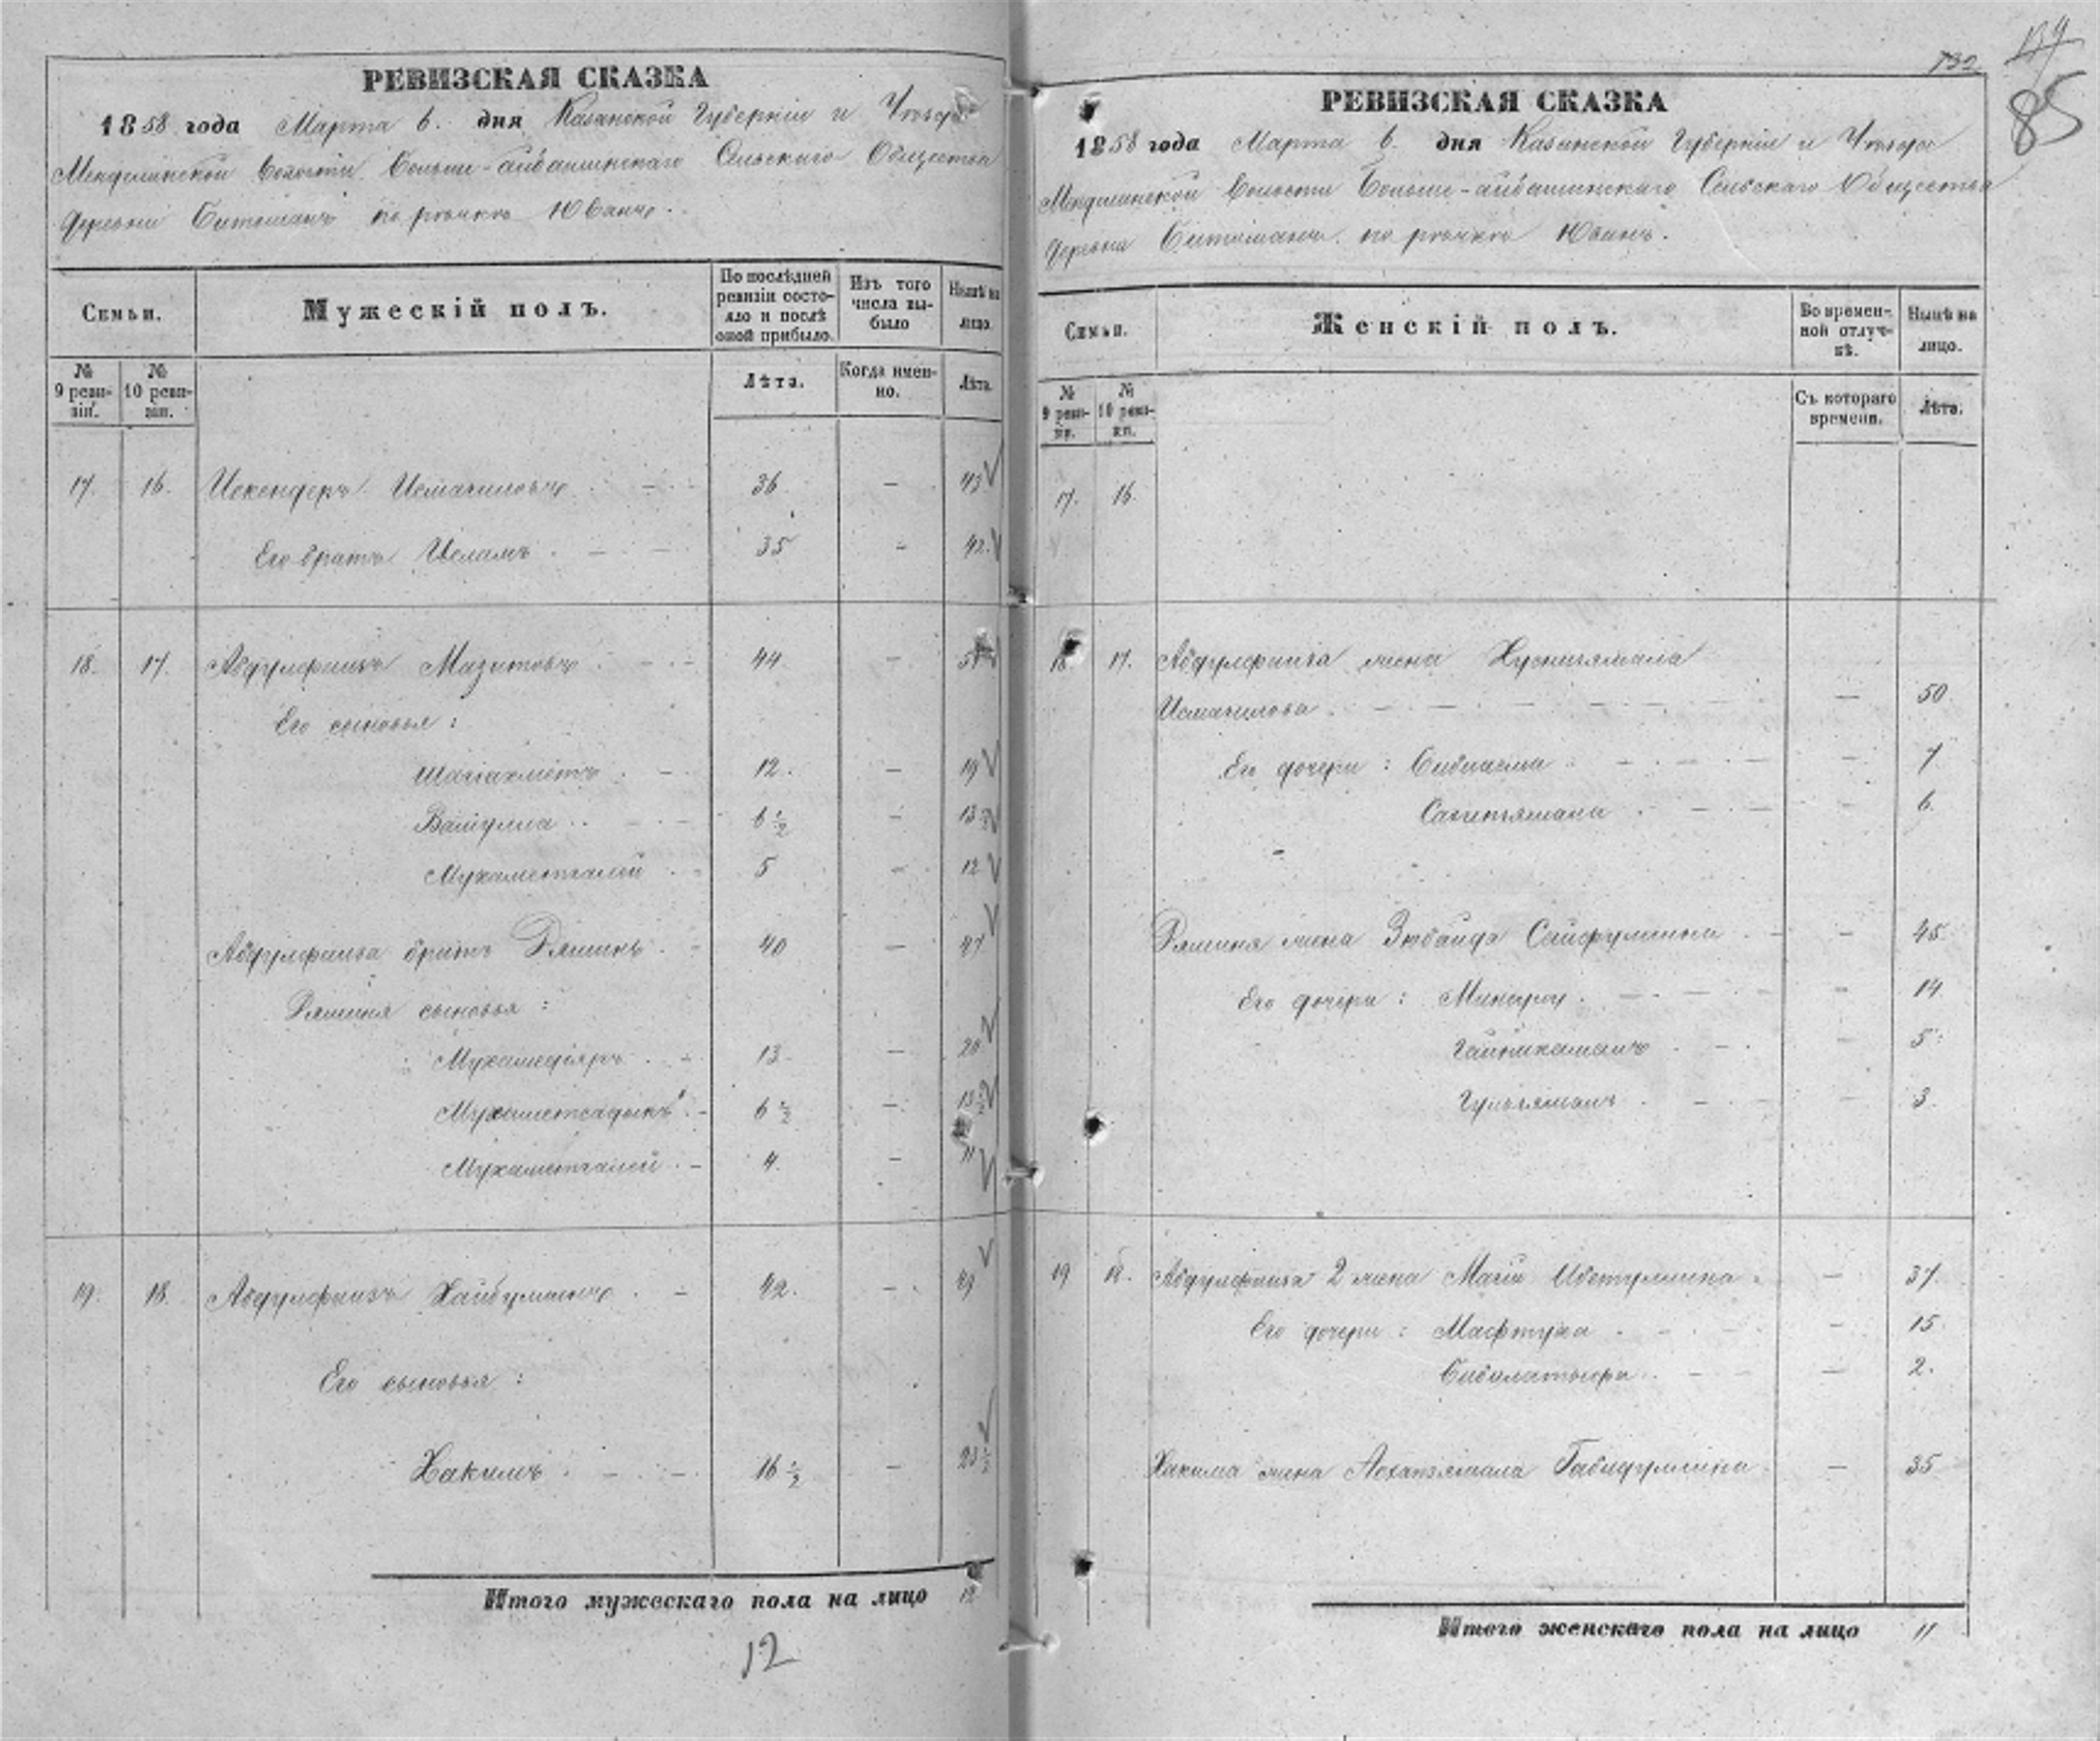 РЕВИЗСКАЯ СКАЗКА
1858 года Марта 6. дня Казанской Губерніи и Уѣзда
Менделинской Волости Больше-айбашинскаго Сельскаго Общества
Деревни Битаманъ по рѣчкѣ Юванъ.
Семьи.
Мужескій полъ.
По послѣдней ревизіи состояло и послѣ оной прибыло.
Изъ того числа выбыло
Нынѣ на лицо.
№ 9 ревизіи.
№ 10 ревизіи.
Лѣта.
Когда именно.
Лѣта.
17. 16. Искендеръ Исмагиловъ 36 — 43
Его братъ Исламъ 35 — 42
18. 17. Абдулфаизъ Мазитовъ 44 — 51
Его сыновья:
Шагіахметъ 12. — 19
Валіулла 6 1/2 — 13 1/2
Мухаметгалей 5 — 12
Абдулфаиза братъ Рямшинъ 40 — 47
сыновья:
Мухамедіяръ 13 — 20
Мухаметсадыкъ 6 1/2 — 13 1/2
Мухаметгалей 4. — 11
19. 18. Абдулфаизъ Хайбуллинъ 42. — 49
Его сыновья:
Хакимъ 16 1/2 — 23 1/2
Итого мужескаго пола на лицо 12
12
132
85
РЕВИЗСКАЯ СКАЗКА
1858 года Марта 6. дня Казанской Губерніи и Уѣзда
Менделинской Волости Больше-айбашинскаго Сельскаго Общества
Деревни Битаманъ по рѣчкѣ Юванъ.
Семьи.
Женскій полъ.
Во временной отлучкѣ.
Нынѣ на лицо.
№ 9 ревизіи.
№ 10 ревизіи.
Съ котораго времени.
Лѣта.
17. 16.
18. 17. Абдулфаиза жена Хуснизямала
Исмагилова — 50
Его дочери: Бибиасма — 7
Сагитямала — 6.
жена Зюбаида Сайфуллина — 45
Его дочери: — 14
Гайникамалъ — 5.
Гульзямалъ — 3.
19 18. Абдулфаиза 2 жена Ибетуллина — 37
Его дочери: Мафтуха — 15
— 2.
Хакима жена Габидуллина — 35
Итого женскаго пола на лицо 11